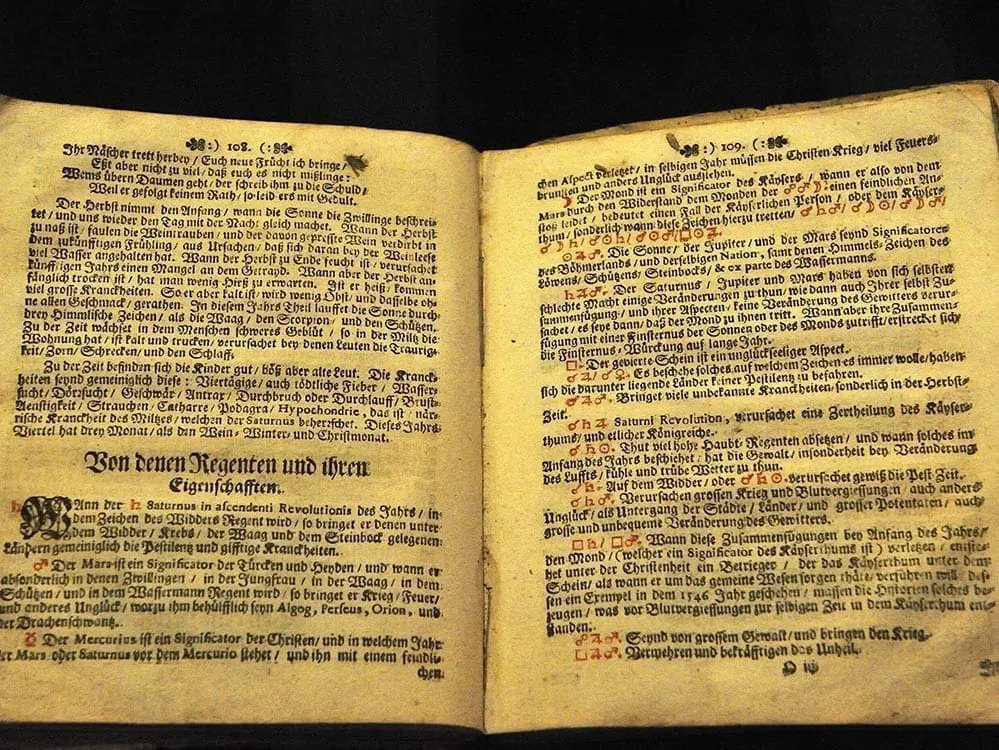 :) 108. (:
Ihr Näscher trett herbey / Euch neue Frücht ich bringe /
Eßt aber nicht zu viel / daß euch es nicht mißlinge:
Wems übern Daumen geht / der schreib ihm zu die Schuld /
Weil er gefolgt keinem Rath / so leid ers mit Gedult.
Der Herbst nimmt den Anfang / wann die Sonne die Zwillinge beschrei-
tet / und uns wieder den Tag mit der Nacht gleich machet. Wann der Herbst
zu naß ist / faulen die Weintrauben / und der davon gepreste Wein verdirbt in
dem zukünfftigen Frühling / aus Ursachen / daß sich daran bey der Weinlese
viel Wasser angehalten hat. Wann der Herbst zu Ende feucht ist / verursachet
künfftigen Jahrs einen Mangel an dem Getrayd. Wann aber der Herbst an-
fänglich trocken ist / hat man wenig Hirß zu erwarten. Ist er heiß / kommen
viel grosse Kranckheiten. So er aber kalt ist / wird wenig Obst / und dasselbe oh-
ne allen Geschmack / gerathen. In diesem Jahrs Theil laufft die Sonne durch
drey Himmlische Zeichen / als die Waag / den Scorpion / und den Schützen.
Zu der Zeit wächset in dem Menschen schweres Geblüt / so in der Miltz die
Wohnung hat / ist kalt und trucken / verursachet bey denen Leuten die Traurig-
keit / Zorn / Schrecken / und den Schlaff.
Zu der Zeit befinden sich die Kinder gut / böß aber alte Leut. Die Kranck-
heiten seynd gemeiniglich diese: Viertägige / auch tödtliche Fieber / Wasser-
sucht / Dörrsucht / Geschwär / Antrax / Durchbruch oder Durchlauff / Brust-
Aenstigkeit / Strauchen / Catharre / Podagra / Hypochondrie, das ist / när-
rische Kranckheit des Miltzes / welchen der Saturnus beherrschet. Dieses Jahrs
Viertel hat drey Monat / als den Wein- Winter- und Christmonat.
Von denen Regenten und ihren
Eigenschafften.
♄ WAnn der ♄ Saturnus in ascendenti Revolutionis des Jahrs / in
dem Zeichen des Widders Regent wird / so bringet er denen unter
dem Widder / Krebs / der Waag und dem Steinbock gelegenen
Ländern gemeiniglich die Pestilentz und gifftige Kranckheiten.
♂ Der Mars ist ein Significator der Türcken und Heyden / und wann er
absonderlich in denen Zwillingen / in der Jungfrau / in der Waag / in dem
Schützen / und in dem Wassermann Regent wird / so bringet er Krieg / Feuer /
und anderes Unglück / worzu ihm behülfflich seyn Algog, Perseus, Orion, und
der Drachenschwantz.
☿ Der Mercurius ist ein Significator der Christen / und in welchem Jahr
der Mars oder Saturnus vor dem Mercurio stehet / und ihn mit einem feindli-
chen
:) 109. (:
chen Aspect verletzet / in selbigen Jahr müssen die Christen Krieg / viel Feuers-
brunsten und anders Unglück ausstehen.
☽ Der Mond ist ein Significator des Käysers / wann er also von dem
Mars durch den Widerstand dem Monden der ☍♂☽ einen feindlichen An-
stoß leidt / bedeutet einen Fall der Käyserlichen Person / oder dem Käyser-
thum / sonderlich wann diese Zeichen hierzu tretten /
☉♃♂. Die Sonne / der Jupiter / und der Mars seynd Significatores
des Böhmerlands / und derselbigen Nation, samt denen Himmels-Zeichen des
Löwens / Schützens / Steinbocks / & ex parte des Wassermanns.
♄♃♂. Der Saturnus / Jupiter und Mars haben von sich selbsten
schlechte Macht einige Veränderungen zu thun / wie dann auch Ihrer selbst Zu-
sammenfügung / und ihrer Aspecten / keine Veränderung des Gewitters verur-
sachet / es seye dann / daß der Mond zu ihnen tritt. Wann aber ihre Zusammen-
fügung mit einer Finsternus der Sonnen oder des Monds zutrifft / erstrecket sich
die Finsternus-Würckung auf lange Jahr.
□. Der gevierte Schein ist ein unglückseeliger Aspect.
♂♃♀. Es beschehe solches auf welchem Zeichen es immer wolle / haben
sich die darunter liegende Länder keiner Pestilentz zu befahren.
☌♃♂. Bringet viele unbekannte Kranckheiten / sonderlich in der Herbst-
Zeit.
☌♄♃ Saturni Revolution, verursachet eine Zertheilung des Käyser-
thums / und etlicher Königreiche.
☌♄☉. Thut viel hohe Haubt-Regenten absetzen / und wann solches im
Anfang des Jahrs beschiehet / hat die Gewalt / insonderheit bey Veränderung
des Luffts / kühle und trübe Wetter zu thun.
☌♄. Auf dem Widder / oder ☌♄☉. verursachet gewiß die Pest-Zeit.
☌♄♂. Verursachen grossen Krieg und Blutvergiessungen / auch anders
Unglück / als Untergang der Städte / Länder / und grosser Potentaten / auch
grosse und unbequeme Veränderung des Gewitters.
□♄ / □♂. Wann diese Zusammenfügungen bey Anfang des Jahrs /
den Mond / (welcher ein Significator des Käyserthums ist) verletzen / entste-
het unter der Christenheit ein Betrieger / der das Käyserthum unter dem
Schein / als wann er um das gemeine Wesen sorgen thäte / verführen will / des-
sen ein Exempel in dem 1546 Jahr geschehen / massen die Historien solches be-
zeugen / was vor Blutvergiessung zur selbigen Zeit in dem Käyserthum ent-
standen.
☍♃♂. Seynd von grossem Gewalt / und bringen den Krieg.
□♃♂. Verwehren und bekräfftigen das Unheil.
O iij